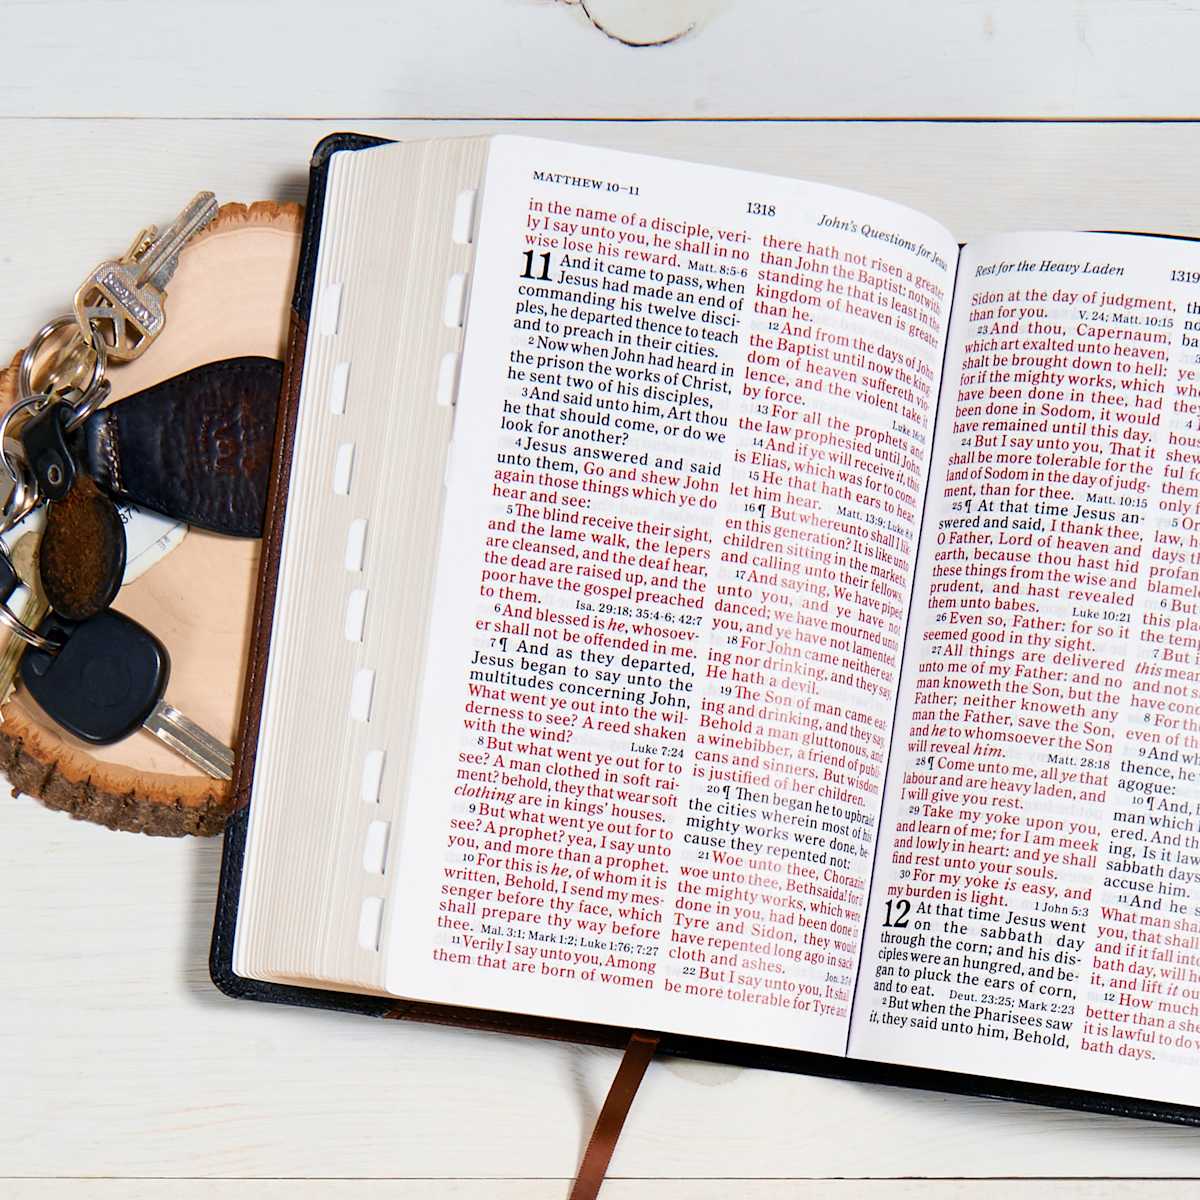 MATTHEW 10–11
1318
John's Questions for Jesus
in the name of a disciple, veri-
ly I say unto you, he shall in no
wise lose his reward. Matt. 8:5-6
11 And it came to pass, when
Jesus had made an end of
commanding his twelve disci-
ples, he departed thence to teach
and to preach in their cities.
2 Now when John had heard in
the prison the works of Christ,
he sent two of his disciples,
3 And said unto him, Art thou
he that should come, or do we
look for another?
4 Jesus answered and said
unto them, Go and shew John
again those things which ye do
hear and see:
5 The blind receive their sight,
and the lame walk, the lepers
are cleansed, and the deaf hear,
the dead are raised up, and the
poor have the gospel preached
to them. Isa. 29:18; 35:4-6; 42:7
6 And blessed is he, whosoev-
er shall not be offended in me.
7 ¶ And as they departed,
Jesus began to say unto the
multitudes concerning John,
What went ye out into the wil-
derness to see? A reed shaken
with the wind? Luke 7:24
8 But what went ye out for to
see? A man clothed in soft rai-
ment? behold, they that wear soft
clothing are in kings' houses.
9 But what went ye out for to
see? A prophet? yea, I say unto
you, and more than a prophet.
10 For this is he, of whom it is
written, Behold, I send my mes-
senger before thy face, which
shall prepare thy way before
thee. Mal. 3:1; Mark 1:2; Luke 1:76; 7:27
11 Verily I say unto you, Among
them that are born of women
there hath not risen a greater
than John the Baptist: notwith-
standing he that is least in the
kingdom of heaven is greater
than he.
12 And from the days of John
the Baptist until now the king-
dom of heaven suffereth vio-
lence, and the violent take it
by force. Luke 16:16
13 For all the prophets and
the law prophesied until John.
14 And if ye will receive it, this
is Elias, which was for to come.
15 He that hath ears to hear,
let him hear. Matt. 13:9; Luke 8:8
16 ¶ But whereunto shall I lik-
en this generation? It is like unto
children sitting in the markets,
and calling unto their fellows,
17 And saying, We have piped
unto you, and ye have not
danced; we have mourned unto
you, and ye have not lamented.
18 For John came neither eat-
ing nor drinking, and they say,
He hath a devil.
19 The Son of man came eat-
ing and drinking, and they say,
Behold a man gluttonous, and
a winebibber, a friend of publi-
cans and sinners. But wisdom
is justified of her children.
20 ¶ Then began he to upbraid
the cities wherein most of his
mighty works were done, be-
cause they repented not:
21 Woe unto thee, Chorazin!
woe unto thee, Bethsaida! for if
the mighty works, which were
done in you, had been done in
Tyre and Sidon, they would
have repented long ago in sack-
cloth and ashes.
22 But I say unto you, It shall
be more tolerable for Tyre and
Rest for the Heavy Laden
1319
Sidon at the day of judgment,
than for you. V. 24; Matt. 10:15
23 And thou, Capernaum,
which art exalted unto heaven,
shalt be brought down to hell:
for if the mighty works, which
have been done in thee, had
been done in Sodom, it would
have remained until this day.
24 But I say unto you, That it
shall be more tolerable for the
land of Sodom in the day of judg-
ment, than for thee. Matt. 10:15
25 ¶ At that time Jesus an-
swered and said, I thank thee,
O Father, Lord of heaven and
earth, because thou hast hid
these things from the wise and
prudent, and hast revealed
them unto babes. Luke 10:21
26 Even so, Father: for so it
seemed good in thy sight.
27 All things are delivered
unto me of my Father: and no
man knoweth the Son, but the
Father; neither knoweth any
man the Father, save the Son,
and he to whomsoever the Son
will reveal him. Matt. 28:18
28 ¶ Come unto me, all ye that
labour and are heavy laden, and
I will give you rest.
29 Take my yoke upon you,
and learn of me; for I am meek
and lowly in heart: and ye shall
find rest unto your souls.
30 For my yoke is easy, and
my burden is light. 1 John 5:3
12 At that time Jesus went
on the sabbath day
through the corn; and his dis-
ciples were an hungred, and be-
gan to pluck the ears of corn,
and to eat. Deut. 23:25; Mark 2:23
2 But when the Pharisees saw
it, they said unto him, Behold,
ye
4
only
5
law,
days
6 But
this place
the temp
7 But i
this mean
and not s
have cond
8 For th
even of th
9 And wh
thence, he
agogue:
10 ¶ And,
man which
ered. And th
ing, Is it law
sabbath days
accuse him.
11 And he s
What man sha
you, that shall
and if it fall into
bath day, will he
it, and lift it ou
12 How much
better than a she
it is lawful to do w
bath days.